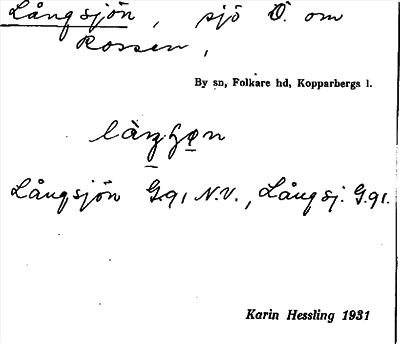 Långsjön, sjö Ö. om
Rossen,
By sn, Folkare hd, Kopparbergs l.
Långsjön G.91 N.V., Långsj. G.91.
Karin Hessling 1931